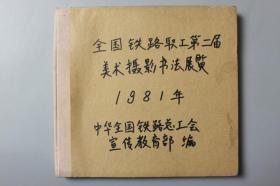 全国铁路职工第二届
美术摄影书法展览
1981年
中华全国铁路总工会
宣传教育部 编